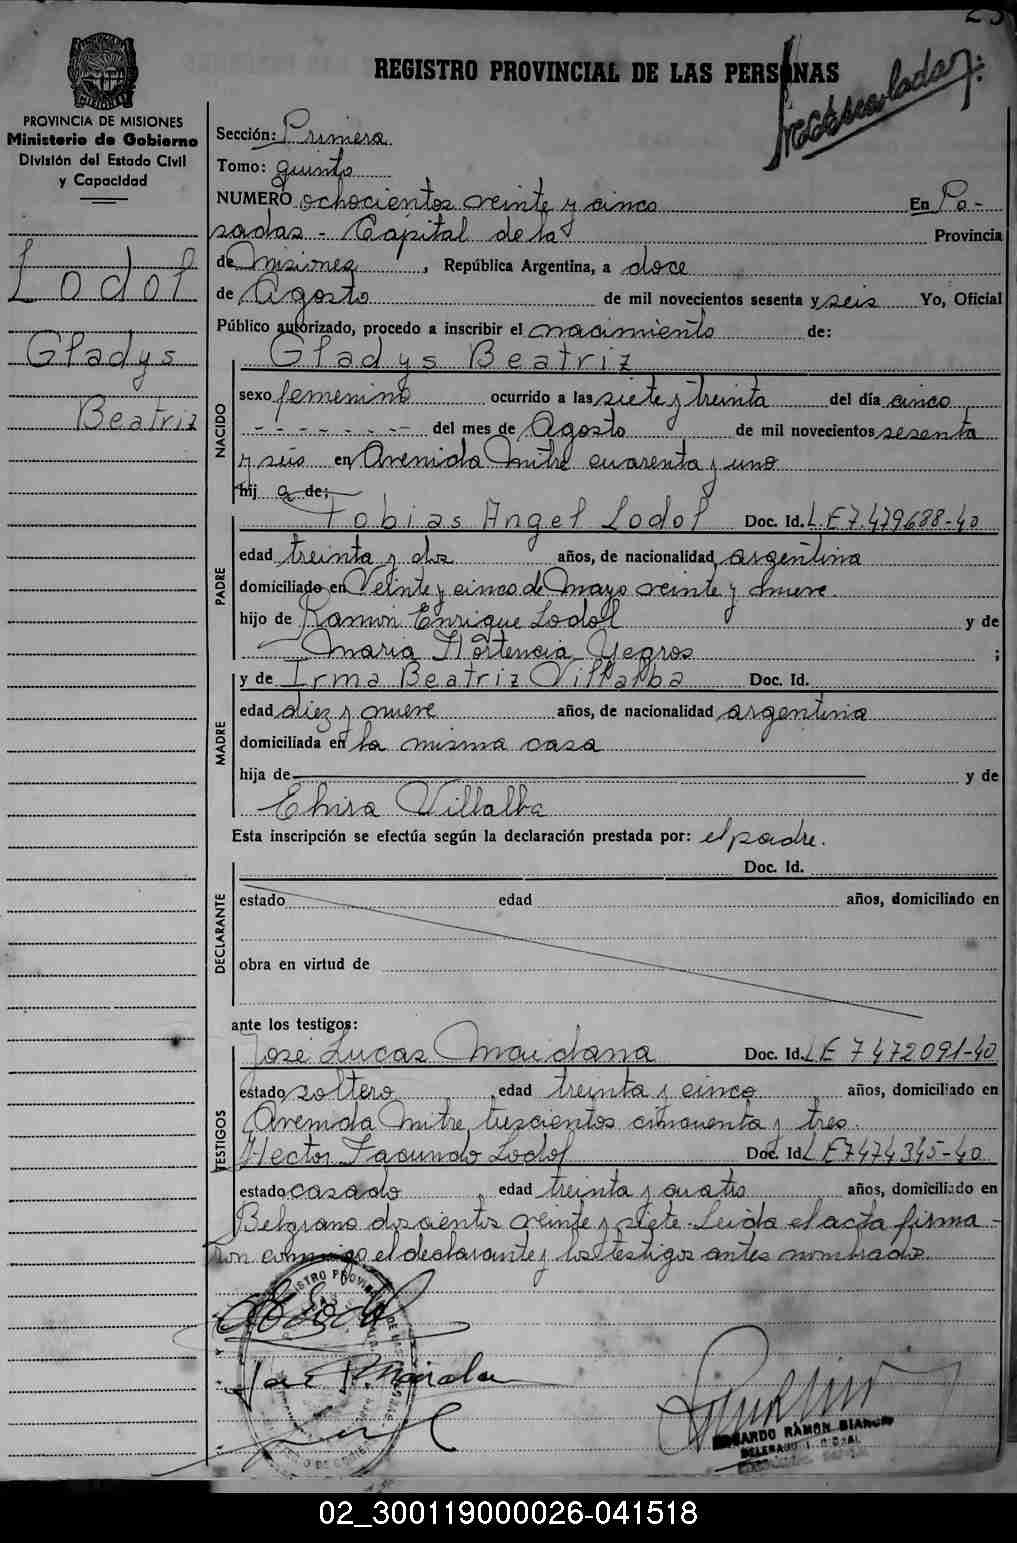 25
REGISTRO PROVINCIAL DE LAS PERSONAS
PROVINCIA DE MISIONES
Ministerio de Gobierno
División del Estado Civil
y Capacidad
Lodol
Gladys
Beatriz
Sección: Primera
Tomo: quinto
NUMERO ochocientos veinte y cinco En Po-
sadas - Capital de la Provincia
de Misiones, República Argentina, a doce
de Agosto de mil novecientos sesenta y seis Yo, Oficial
Público autorizado, procedo a inscribir el nacimiento de:
NACIDO
Gladys Beatriz
sexo femenino ocurrido a las siete y treinta del día cinco
- - - - - - - del mes de Agosto de mil novecientos sesenta
y seis en Avenida Mitre cuarenta y uno
hij a de:
PADRE
Tobias Angel Lodol Doc. Id. L.E 7.479688-40
edad treinta y dos años, de nacionalidad argentina
domiciliado en Veinte y cinco de Mayo veinte y nueve.
hijo de Ramón Enrique Lodol y de
Maria Hortencia Yegros ;
MADRE
y de Irma Beatriz Villalba Doc. Id.
edad diez y nueve años, de nacionalidad argentina
domiciliada en la misma casa
hija de y de
Villalba
Esta inscripción se efectúa según la declaración prestada por: el padre.
DECLARANTE
Doc. Id.
estado edad años, domiciliado en
obra en virtud de
ante los testigos:
TESTIGOS
José Lucas Maidana Doc. Id. LE 7472091-40
estado soltero, edad treinta y cinco años, domiciliado en
Avenida Mitre trescientos cincuenta y tres.
Hector Facundo Lodol Doc. Id. LE7474345-40
estado casado, edad treinta y cuatro años, domiciliado en
Belgrano doscientos veinte y siete. Leida el acta firma-
ron conmigo el declarante y los testigos antes nombrados.
EDUARDO RAMON BIANCHI
02_300119000026-041518